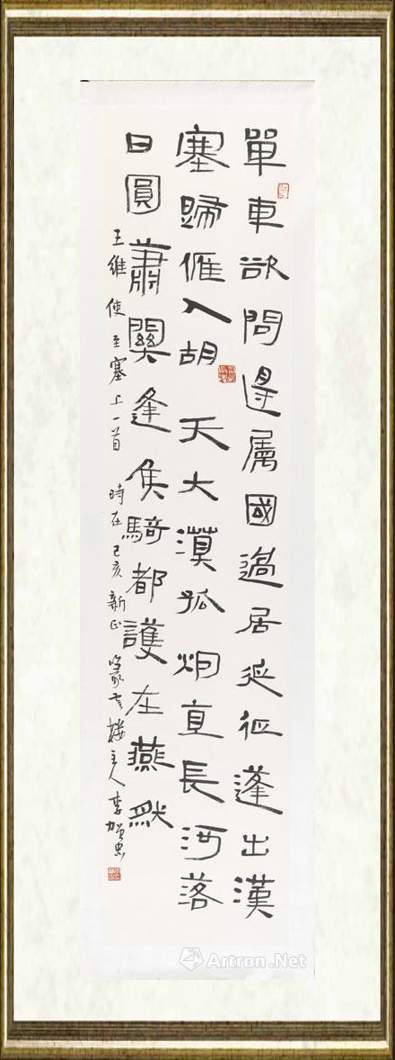 單車欲問邊屬國過居延征蓬出漢
塞歸雁入胡天大漠孤烟直長河落
日圓蕭關逢矦騎都護在燕然
王維使至塞上一首 時在己亥新正 樓主人李忠
Artron.Net